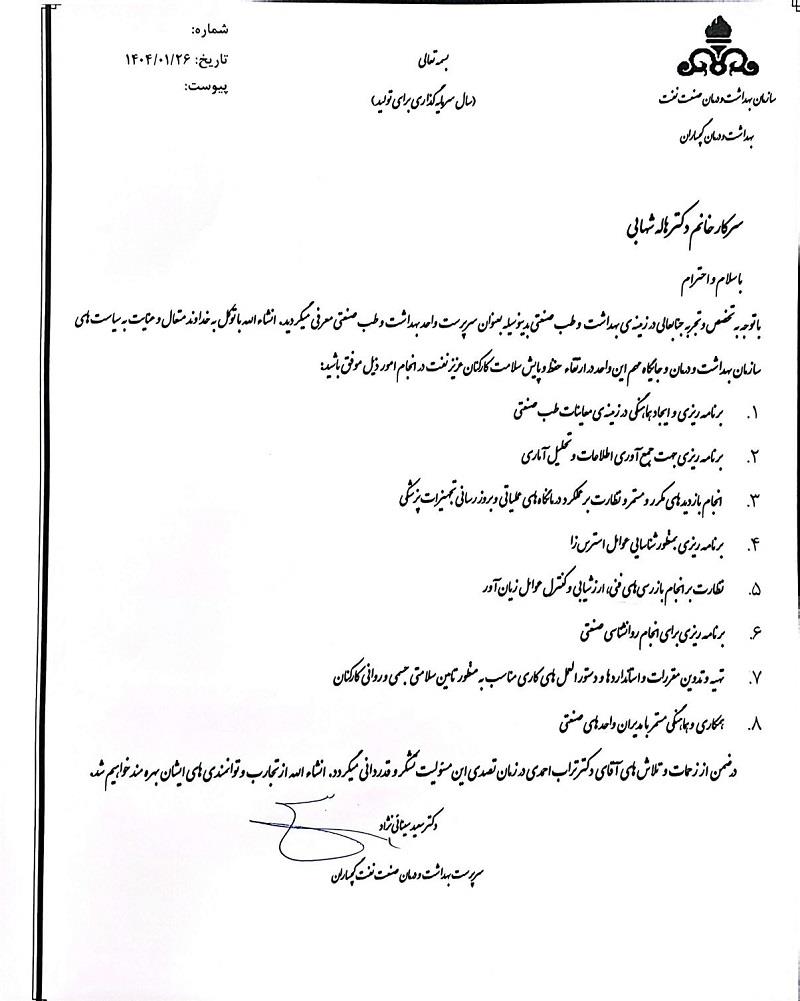 شماره:
تاریخ: ۱۴۰۴/۰۱/۲۶
پیوست:
بسمه تعالی
(سال سرمایه گذاری برای تولید)
سازمان بهداشت و درمان صنعت نفت
بهداشت و درمان گچساران
سرکار خانم دکتر هاله شهابی
با سلام و احترام
با توجه به تخصص و تجربه جنابعالی در زمینه ی بهداشت و طب صنعتی بدینوسیله بعنوان سرپرست واحد بهداشت و طب صنعتی معرفی میگردید. انشاء الله با توکل به خداوند متعال و عنایت به سیاست های
سازمان بهداشت و درمان و جایگاه مهم این واحد در ارتقاء حفظ و پایش سلامت کارکنان عزیز نفت در انجام امور ذیل موفق باشید:
۱. برنامه ریزی و ایجاد هماهنگی در زمینه ی معاینات طب صنعتی
۲. برنامه ریزی جهت جمع آوری اطلاعات و تحلیل آماری
۳. انجام بازدیدهای مکرر و مستمر و نظارت بر عملکرد درمانگاه های عملیاتی و بروز رسانی تجهیزات پزشکی
۴. برنامه ریزی بمنظور شناسایی عوامل استرس زا
۵. نظارت بر انجام بازرسی های فنی، ارزشیابی و کنترل عوامل زیان آور
۶. برنامه ریزی برای انجام روانشناسی صنعتی
۷. تهیه و تدوین مقررات و استانداردها و دستورالعمل های کاری مناسب به منظور تامین سلامتی جسمی و روانی کارکنان
۸. همکاری و هماهنگی مستمر با مدیران واحدهای صنعتی
درضمن از زحمات و تلاش های آقای دکتر تراب احمدی در زمان تصدی این مسئولیت تشکر و قدردانی میگردد. انشاء الله از تجارب و توانمندی های ایشان بهره مند خواهیم شد.
دکتر سعید مینائی نژاد
سرپرست بهداشت و درمان صنعت نفت گچساران